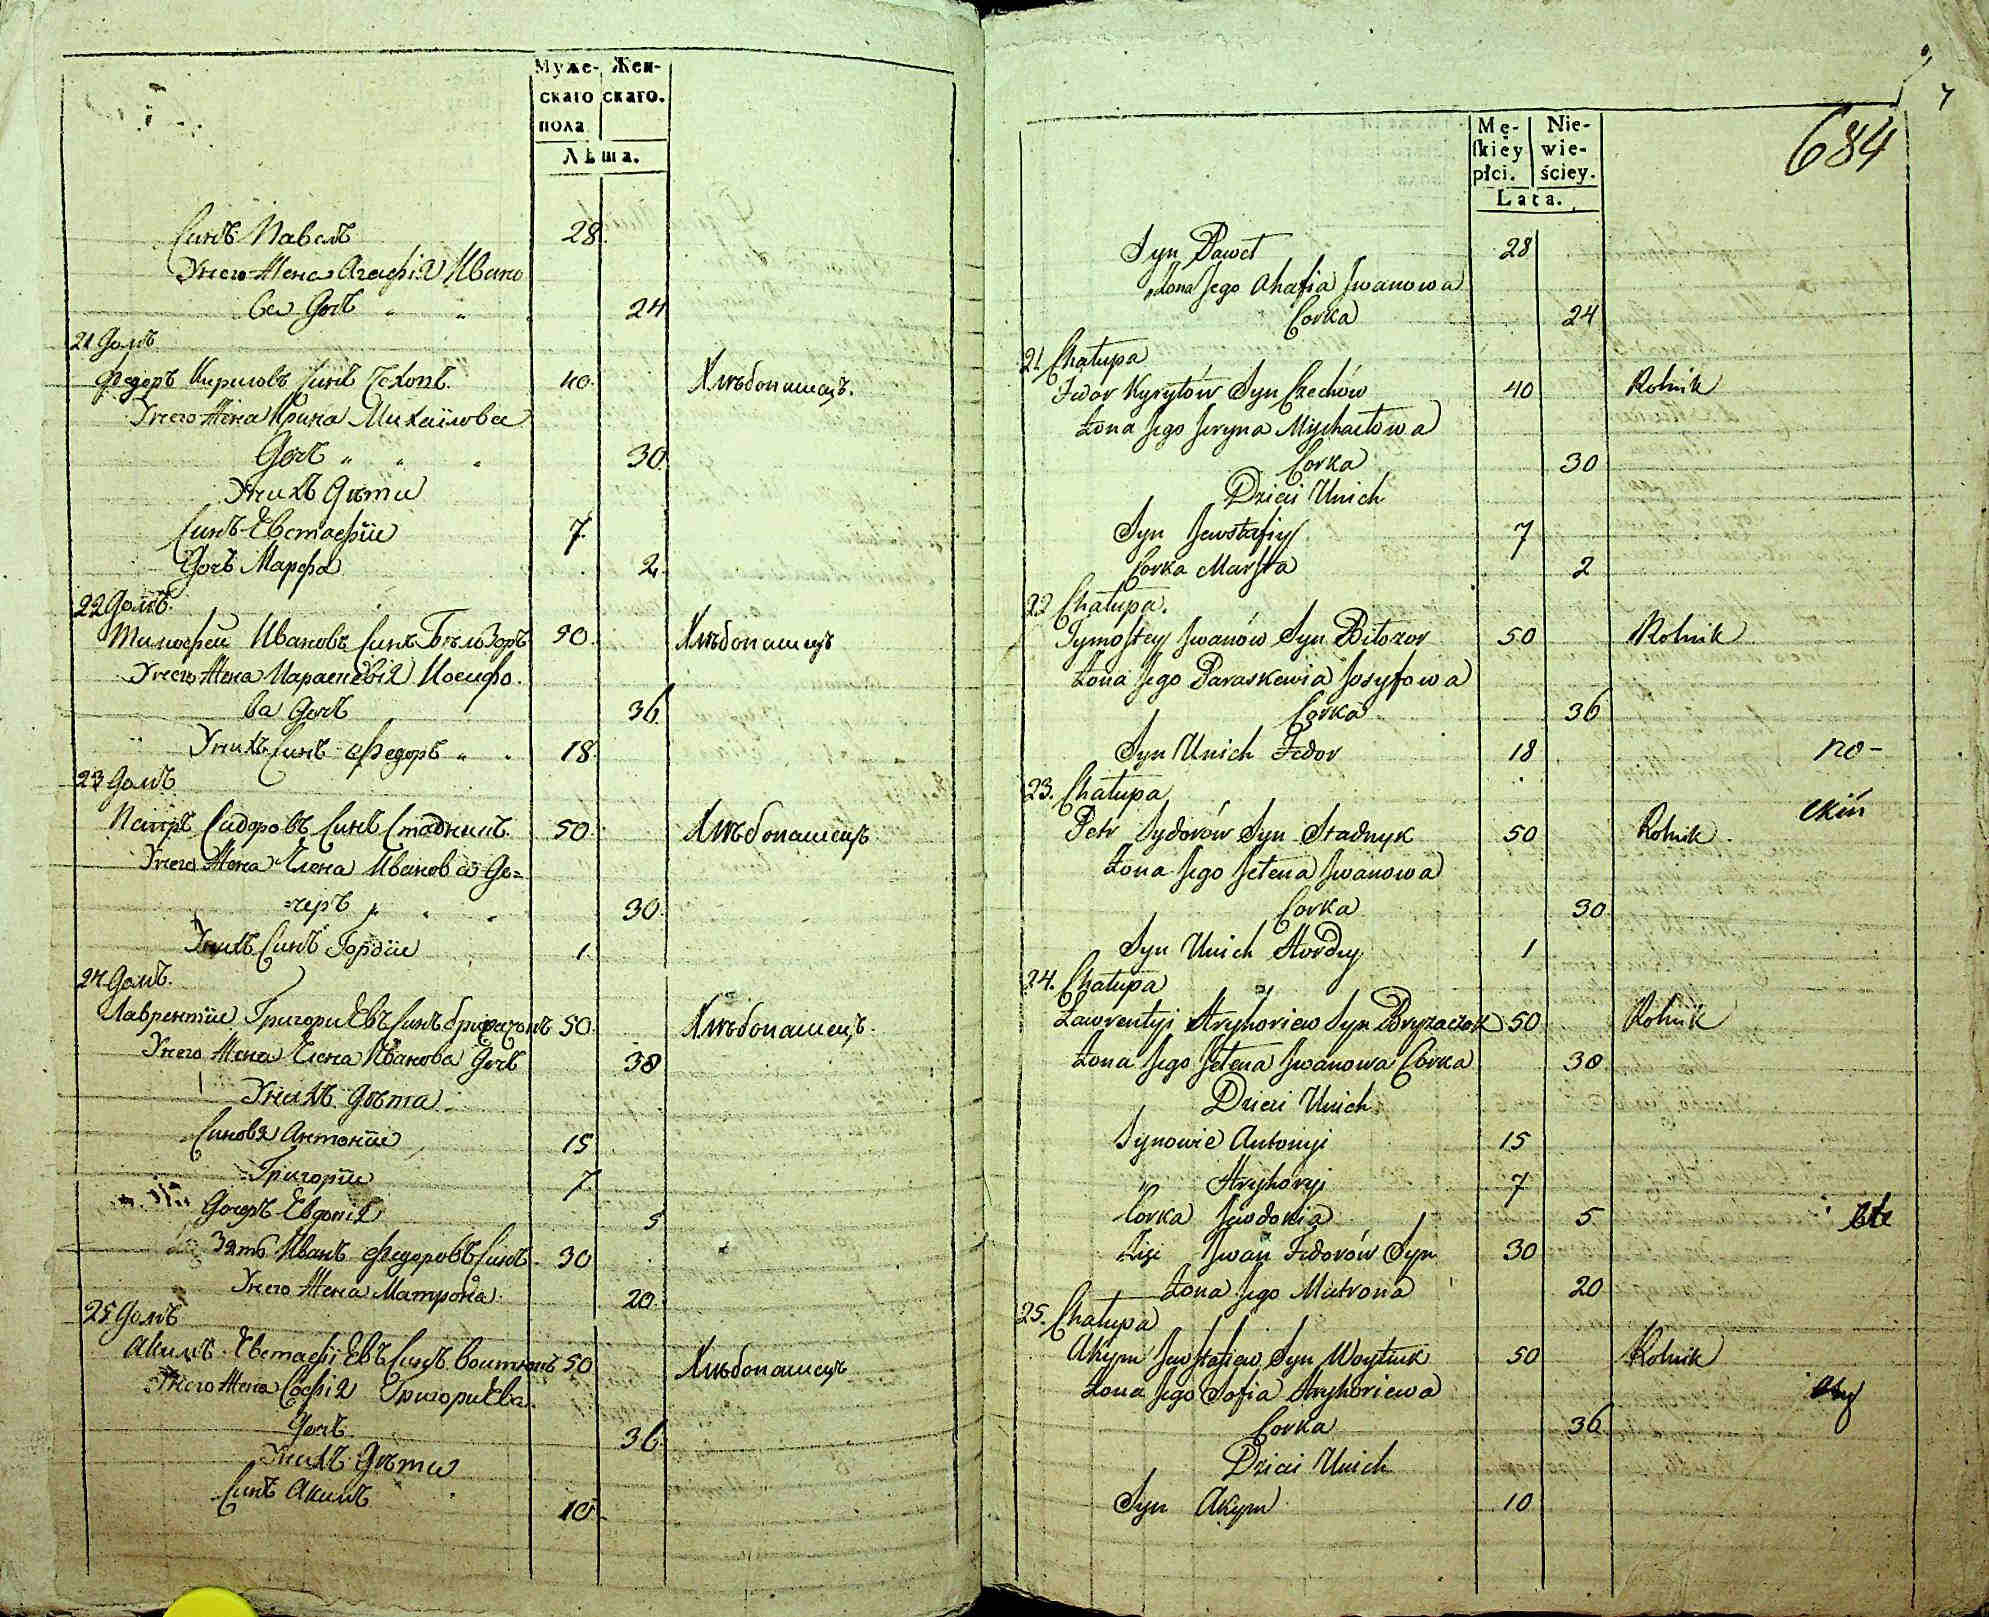 Муже-
скаго
пола
Жен-
скаго.
Лѣта.
Синъ Павелъ 28.
Унего Жена Агафія Ивано
ва Дочь 24
21 Домъ
Федеръ Кириловъ Синъ Чеховъ 40. Хлѣбопашецъ.
Унего Жена Ирина Михаилова
Дочь 30.
Унихъ Дѣти
Синъ Евстафіи 7.
Дочь Марфа 2.
22 Домъ.
Тимофеи Ивановъ Синъ Бѣльзоръ 50. Хлѣбопашецъ
Унего Жена Параскевія Иосифо.
ва Дочь 36
Унихъ Синъ Федоръ 18.
23 Домъ
Петръ Сидоровъ Синъ Стадникъ 50. Хлѣбопашецъ
Унего Жена Елена Иванова До=
=черъ 30.
Унихъ Синъ Гордіи 1.
24 Домъ.
Лаврентіи Григориевъ Синъ 50. Хлѣбопашецъ.
Унего Жена Елена Иванова Дочь 38
Унихъ Дѣти
Синовя Антоніи 15
Григоріи 7
Дочерь Евдокія 5
Зять Иванъ Федоровъ Синъ 30
Унего Жена Матрона 20.
25 Домъ
Акимъ Евстафіевъ Синъ Воитюкъ 50 Хлѣбопашецъ
Унего Жена Софія Григориева
Дочь 36.
Унихъ Дѣти
Синъ Акимъ 10.
7
684
Mę-
skiey
płci.
Nie-
wie-
ściey.
Lata.
Syn Paweł 28
Żona Jego Ahafia Jwanowa
Corka 24
21 Chałupa
Fedor Kyryłów Syn Czechów 40 Rolnik
Żona Jego Jeryna Mychaełowa
Corka 30
Dzieci Unich
Syn Jewstafiy 7
Corka Marfta 2
22 Chałupa.
Tymoftey Jwanów Syn Biłozor 50 Rolnik
Żona Jego Paraskewia Josyfowa
Corka 36
Syn Unich Fedor 18 no-
23. Chałupa
Petr Sydorów Syn Stadnyk 50 Rolnik
Żona Jego Jełena Jwanowa
Corka 30
Syn Unich Hordey 1
24. Chałupa
Ławrentyi Hryhoriew Syn Bryzaczok 50 Rolnik
Żona Jego Jełena Jwanowa Corka 38
Dzieci Unich
Synowie Antonyi 15
" Hryhoryi 7
Corka Jewdokia 5
Jwan Fedorów Syn 30
Żona Jego Matrona 20
25. Chałupa
Akym Jewstafiew Syn Woytiuk 50 Rolnik
Żona Jego Sofia Hryhoriewa
Corka 36
Dzieci Unich
Syn Akym 10